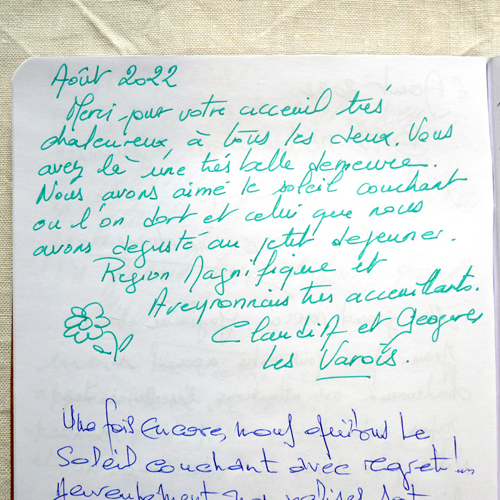 Août 2022
Merci pour votre acceuil très
chaleureux, à tous les deux. Vous
avez là une très belle demeure.
Nous avons aimé le soleil couchant
ou l'on dort et celui que nous
avons degusté au petit dejeuner.
Region Magnifique et
Aveyronnais tres acceuillants.
Claudia et Georges
Les Varois.
Une fois encore, nous quittons le
Soleil couchant avec regret!...